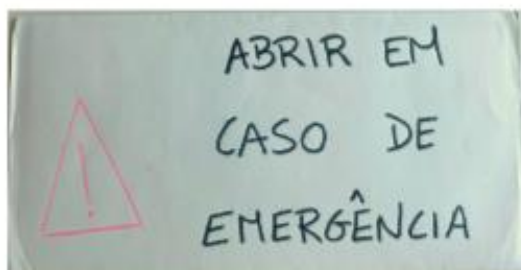 ABRIR EM
CASO DE
EMERGÊNCIA
!